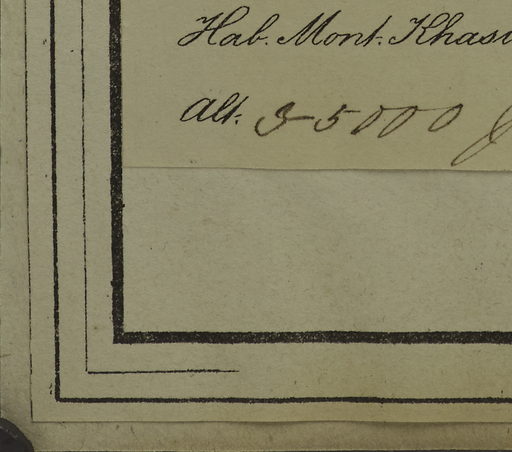 Hab. Mont. Khasi
Alt. 3-5000